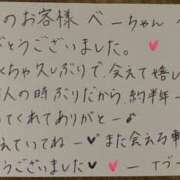 のお客様 べーちゃん
がとうございました。♥
くちゃ久しぶりで、会えて嬉し
人の時ぶりだから、約半年ー
ってくれてありがとー♪
えていてねー♥また会える事
うございました♥